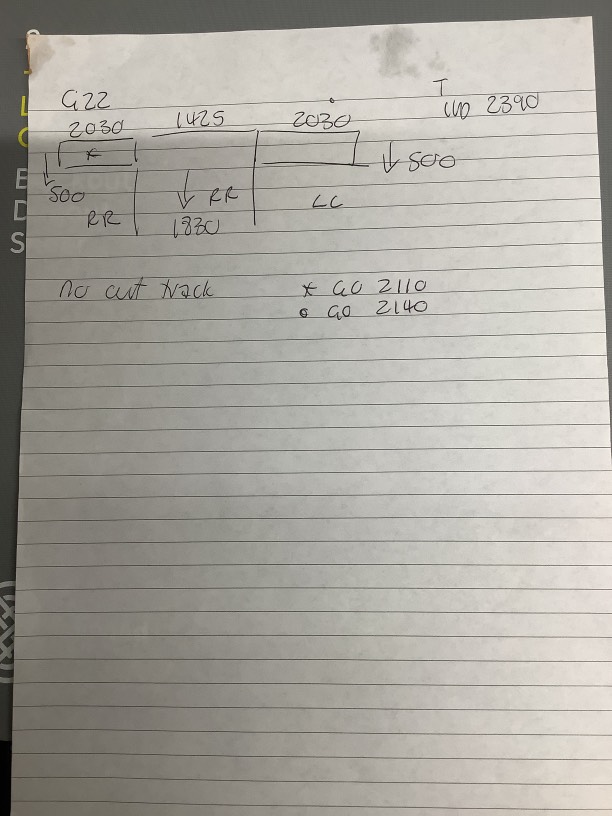 G22
T
2390
2030 1425 2030
*
↓ 500
↓ 500
RR ↓ RR LC
1830
no cut track * GO 2110
GO 2140